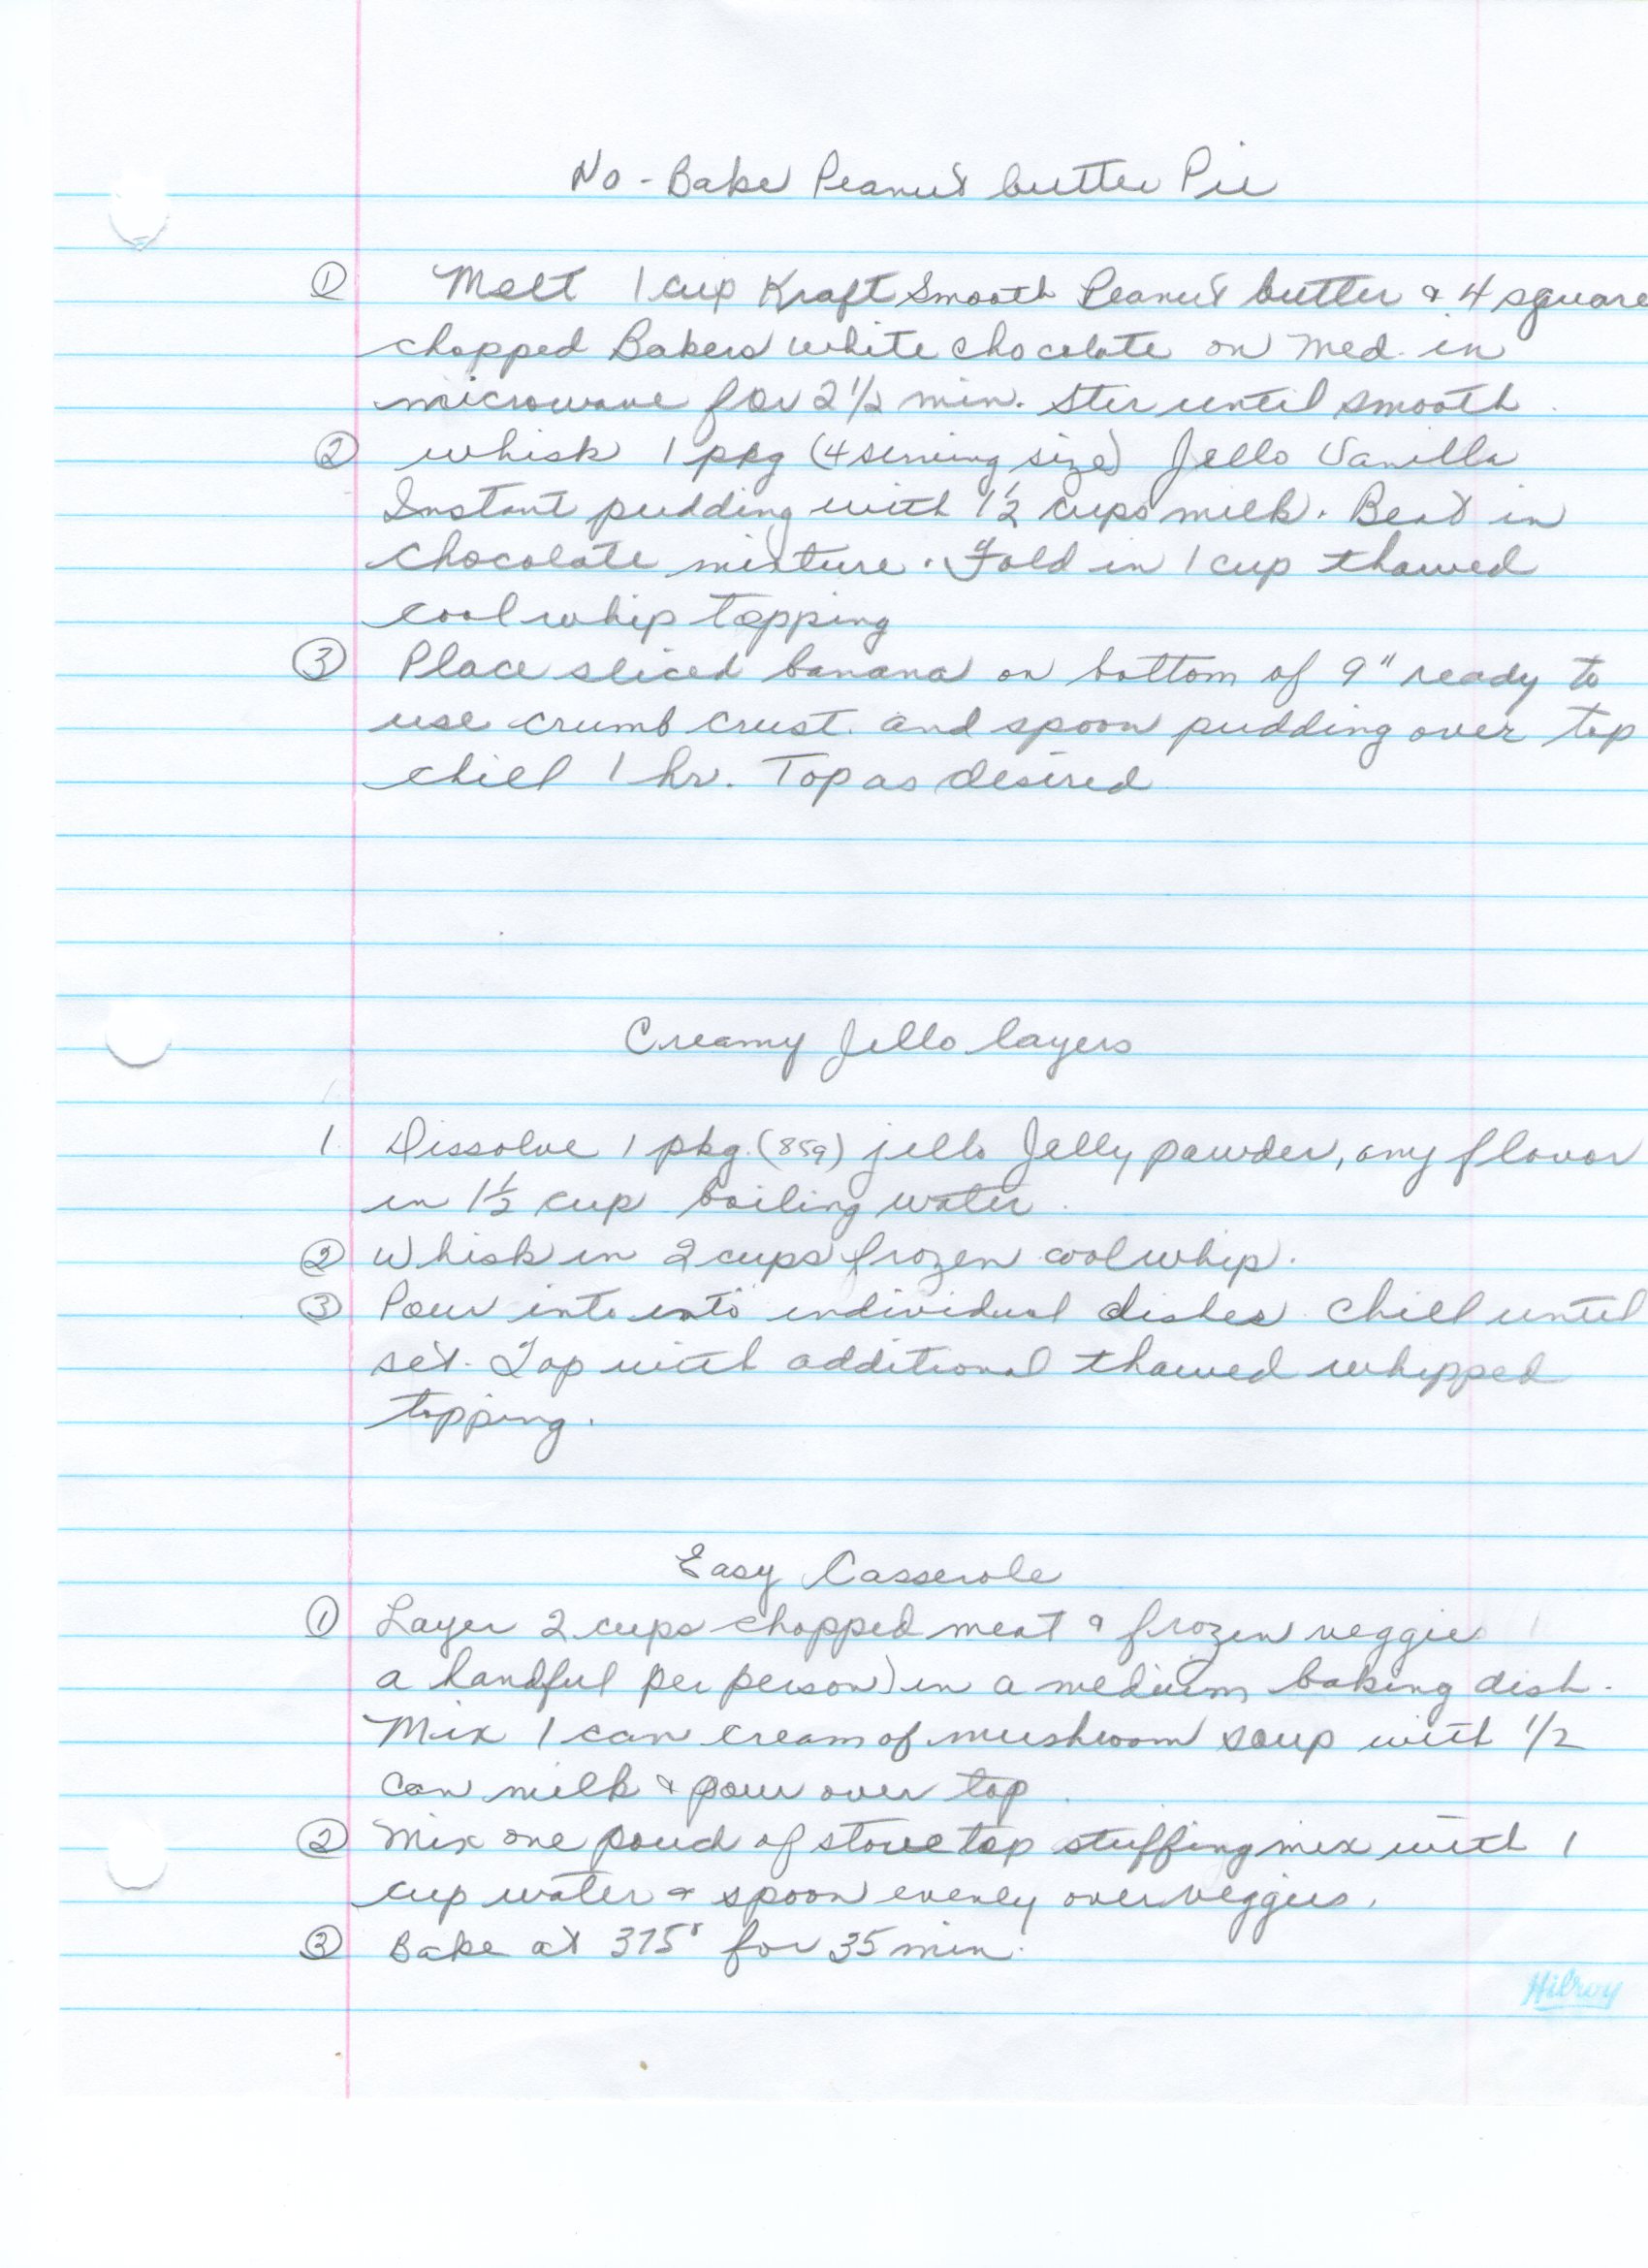 No-Bake Peanut butter Pie
① Melt 1 cup Kraft Smooth Peanut butter & 4 square
chopped Bakers white chocolate on med. in
microwave for 2 1/2 min. Stir until smooth.
② whisk 1 pkg (4 serving size) Jello Vanilla
Instant pudding with 1 1/2 cups milk. Beat in
chocolate mixture. Fold in 1 cup thawed
cool whip topping
③ Place sliced banana on bottom of 9" ready to
use crumb crust. and spoon pudding over top
chill 1 hr. Top as desired
Creamy Jello layers
1. Dissolve 1 pkg. (85g) jello Jelly powder, any flavor
in 1 1/2 cup boiling water.
② Whisk in 2 cups frozen cool whip.
③ Pour into into individual dishes. Chill until
set. Top with additional thawed whipped
topping.
Easy Casserole
① Layer 2 cups chopped meat & frozen veggie
a handful per person) in a medium baking dish.
Mix 1 can cream of mushroom soup with 1/2
can milk & pour over top.
② Mix one pouch of stove top stuffing mix with 1
cup water & spoon evenly over veggies.
③ Bake at 375° for 35 min.
Hilroy